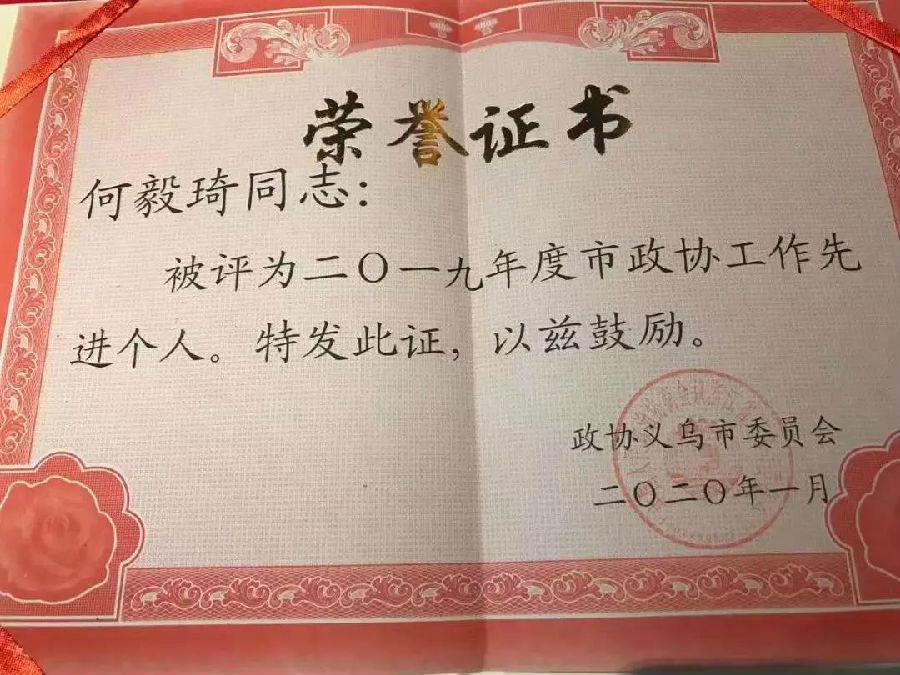 荣誉证书
何毅琦同志：
被评为二〇一九年度市政协工作先
进个人。特发此证，以兹鼓励。
政协义乌市委员会
二〇二〇年一月